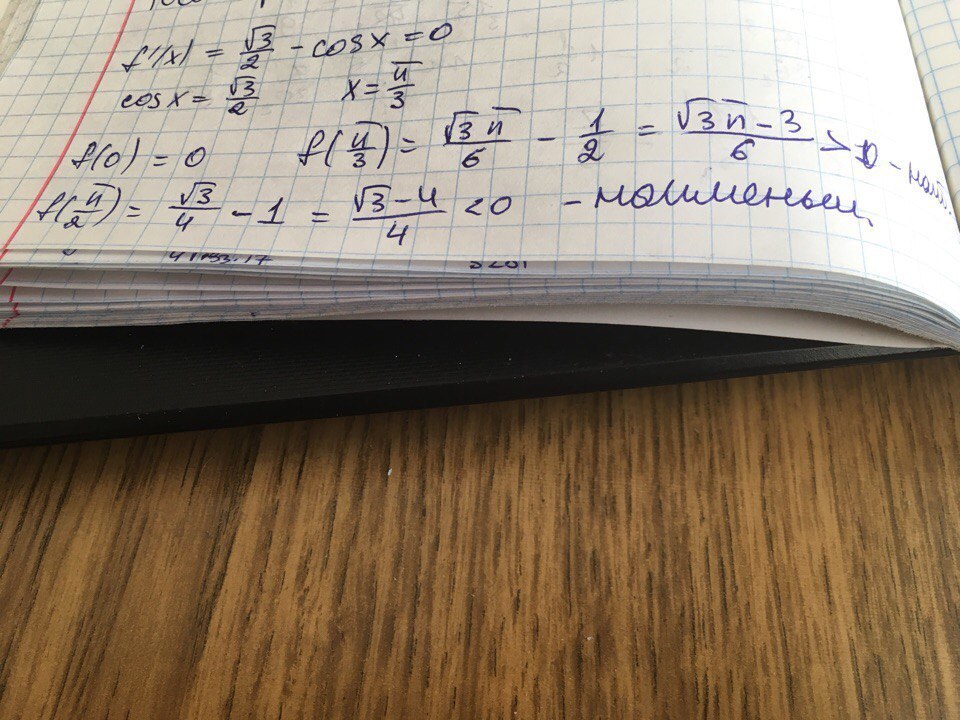 f'(x) = √3/2 - cosx = 0
cosx = √3/2 x = π/3
f(0) = 0 f(π/3) = √3π/6 - 1/2 = (√3π - 3)/6 > 0 -
f(π/2) = √3/4 - 1 = (√3 - 4)/4 < 0 - наименьш.